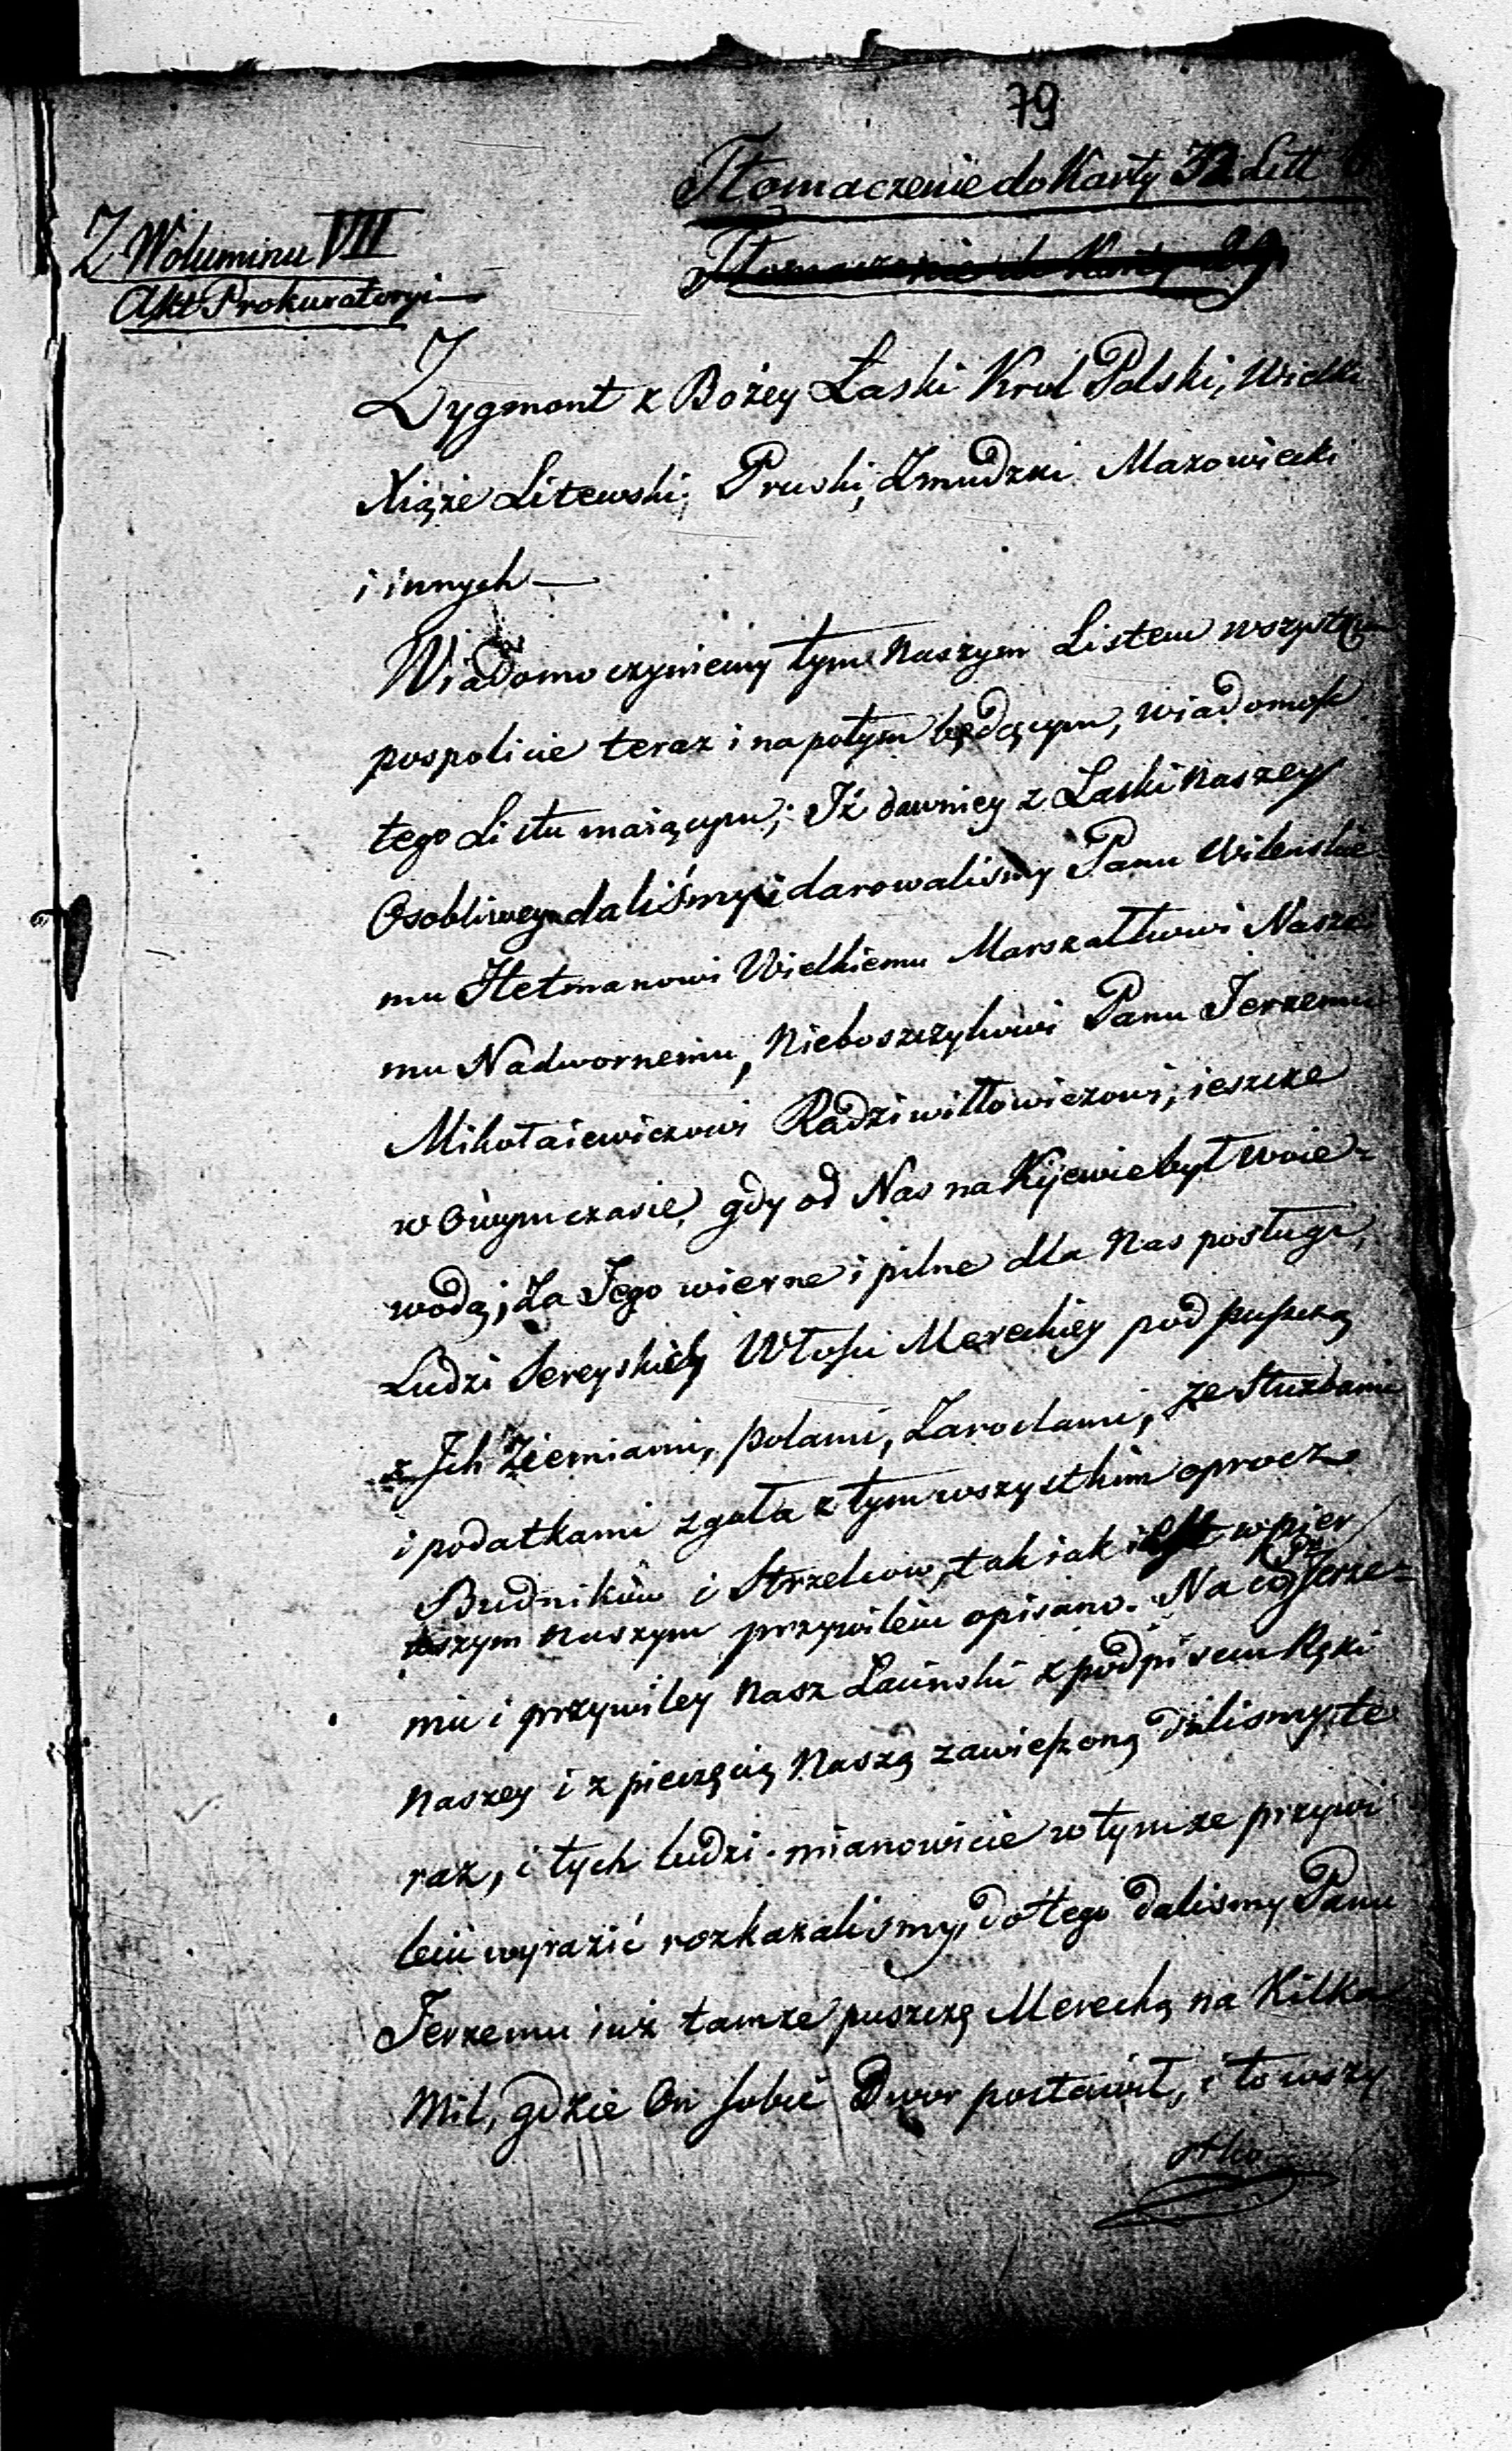 79
Tłomaczenie do Karty 32. Litt
Z Woluminu VII
Akt Prokuratoryi
Tłomaczenie do Karty 29
Zygmont z Bożey Łaski Krol Polski, Wielki
Xiąże Litewski, Pruski, Zmudzki Mazowiecki
i innych —
Wiadomo czyniemy tym Naszym Listem wszystkim
pospolicie teraz i napotym będącym, wiadomość
tego Listu maiącym; Iż dawniey z Łaski Naszey
Osobliwey daliśmy i darowaliśmy Panu Wilenskie
mu Hetmanowi Wielkiemu Marszałkowi Nasze
mu Nadwornemu, Nieboszczykowi Panu Jerzemu
Mikołaiewiczowi Radziwiłłowiczowi, ieszcze
w Owym czasie, gdy od Nas na Kijewie był Woie-
wodą, Za Jego wierne i pilne dla Nas posługi,
Ludzi Sereyskich Włości Mereckiey pod puszczą
z Ich Ziemiami, polami, Zaroslami, ze Służbami
i podatkami zgoła z tym wszystkim oprocz
Budników i Strzelcow, tak iak iest w pier
wszym naszym przywileiu opisano. Na co Jerze-
mu i przywiley Nasz Łacinski z podpisem Ręki
Naszey i z pieczęcią Naszą zawieszoną daliśmy te
raz, i tych ludzi mianowicie w tymże przywi
leiu wyrazić rozkazaliśmy, do tego daliśmy Panu
Jerzemu iuż tamże puszczę Merecką na Kilka
Mil, gdzie On sobie Dwor postawił, i to wszy
stko